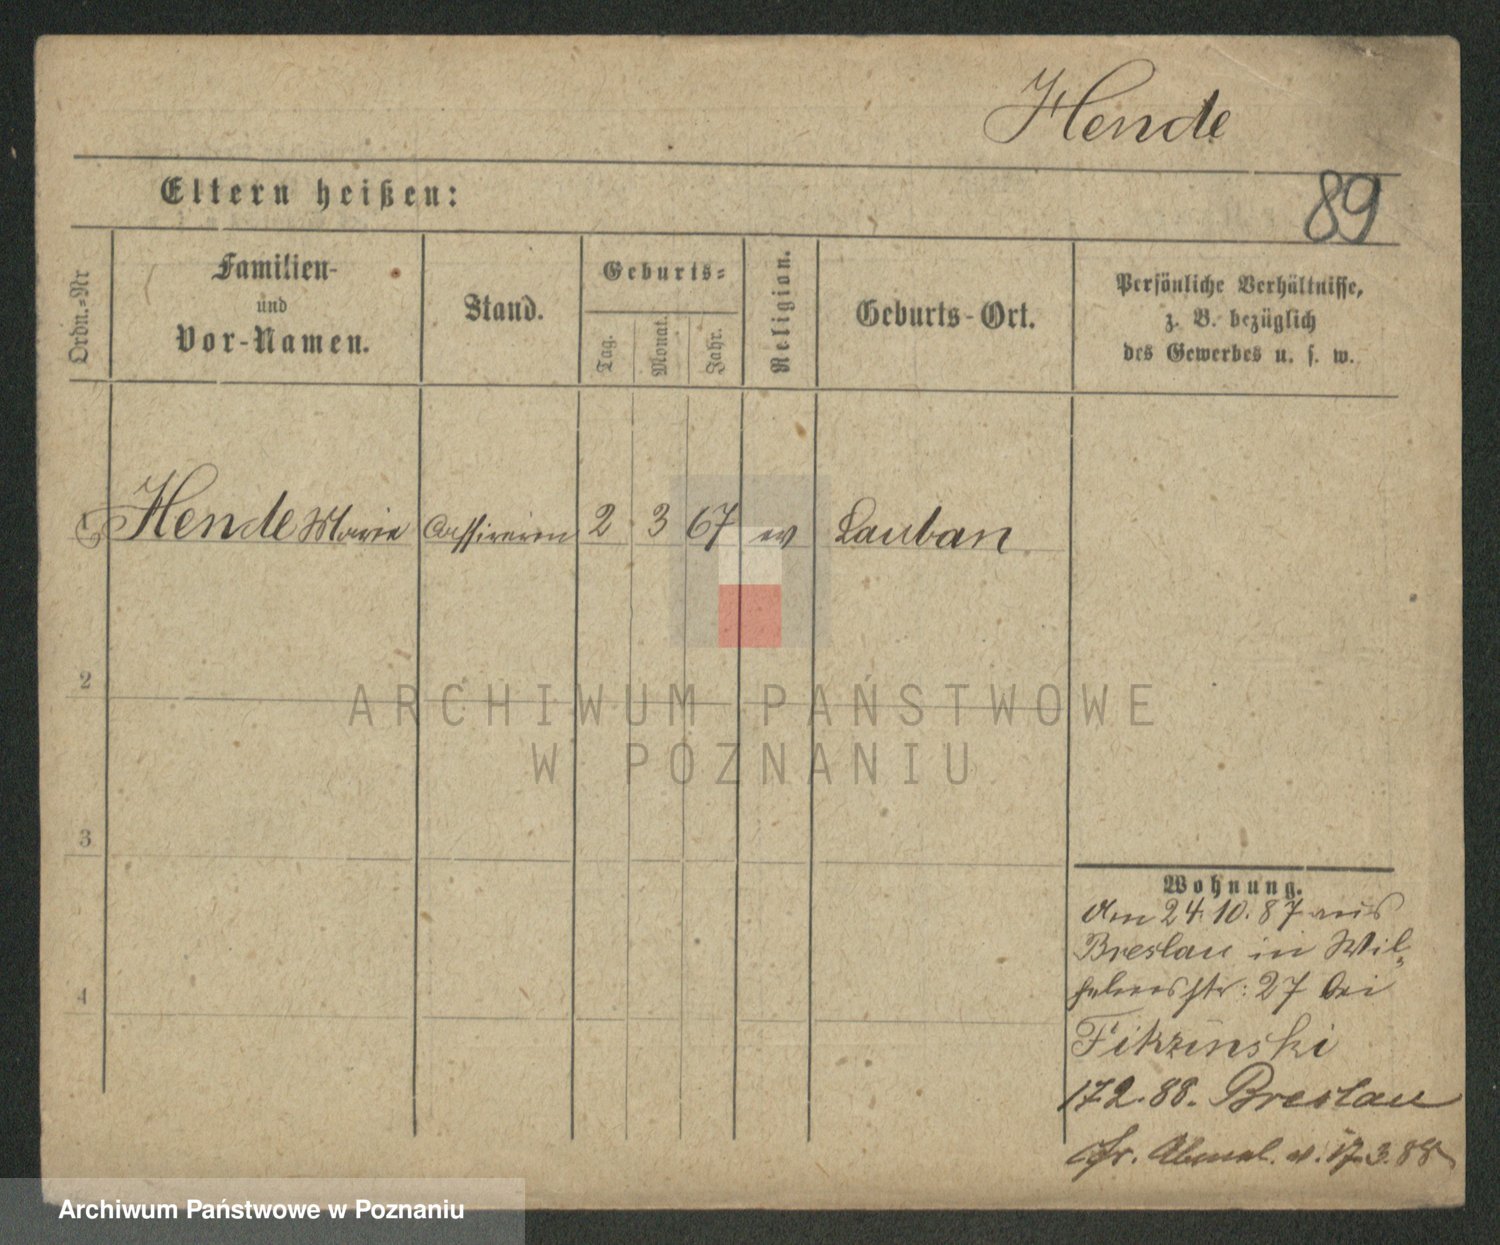 Hende
Eltern heißen:
89
Ordn.-Nr
Familien-
und
Vor-Namen.
Stand.
Geburts-
Tag.
Monat.
Jahr.
Religion.
Geburts-Ort.
Persönliche Verhältnisse,
z. B. bezüglich
des Gewerbes u. s. w.
1 Hende Marie Cassirerin 2 3 67 ev Lauban
2
3
4
ARCHIWUM PAŃSTWOWE
W POZNANIU
Wohnung.
Am 24.10.87 aus
Breslau in Wil-
helmsstr: 27 bei
Fikzinski
17 2.88. Breslau
fr. Abmel. v. 17.3.88
Archiwum Państwowe w Poznaniu